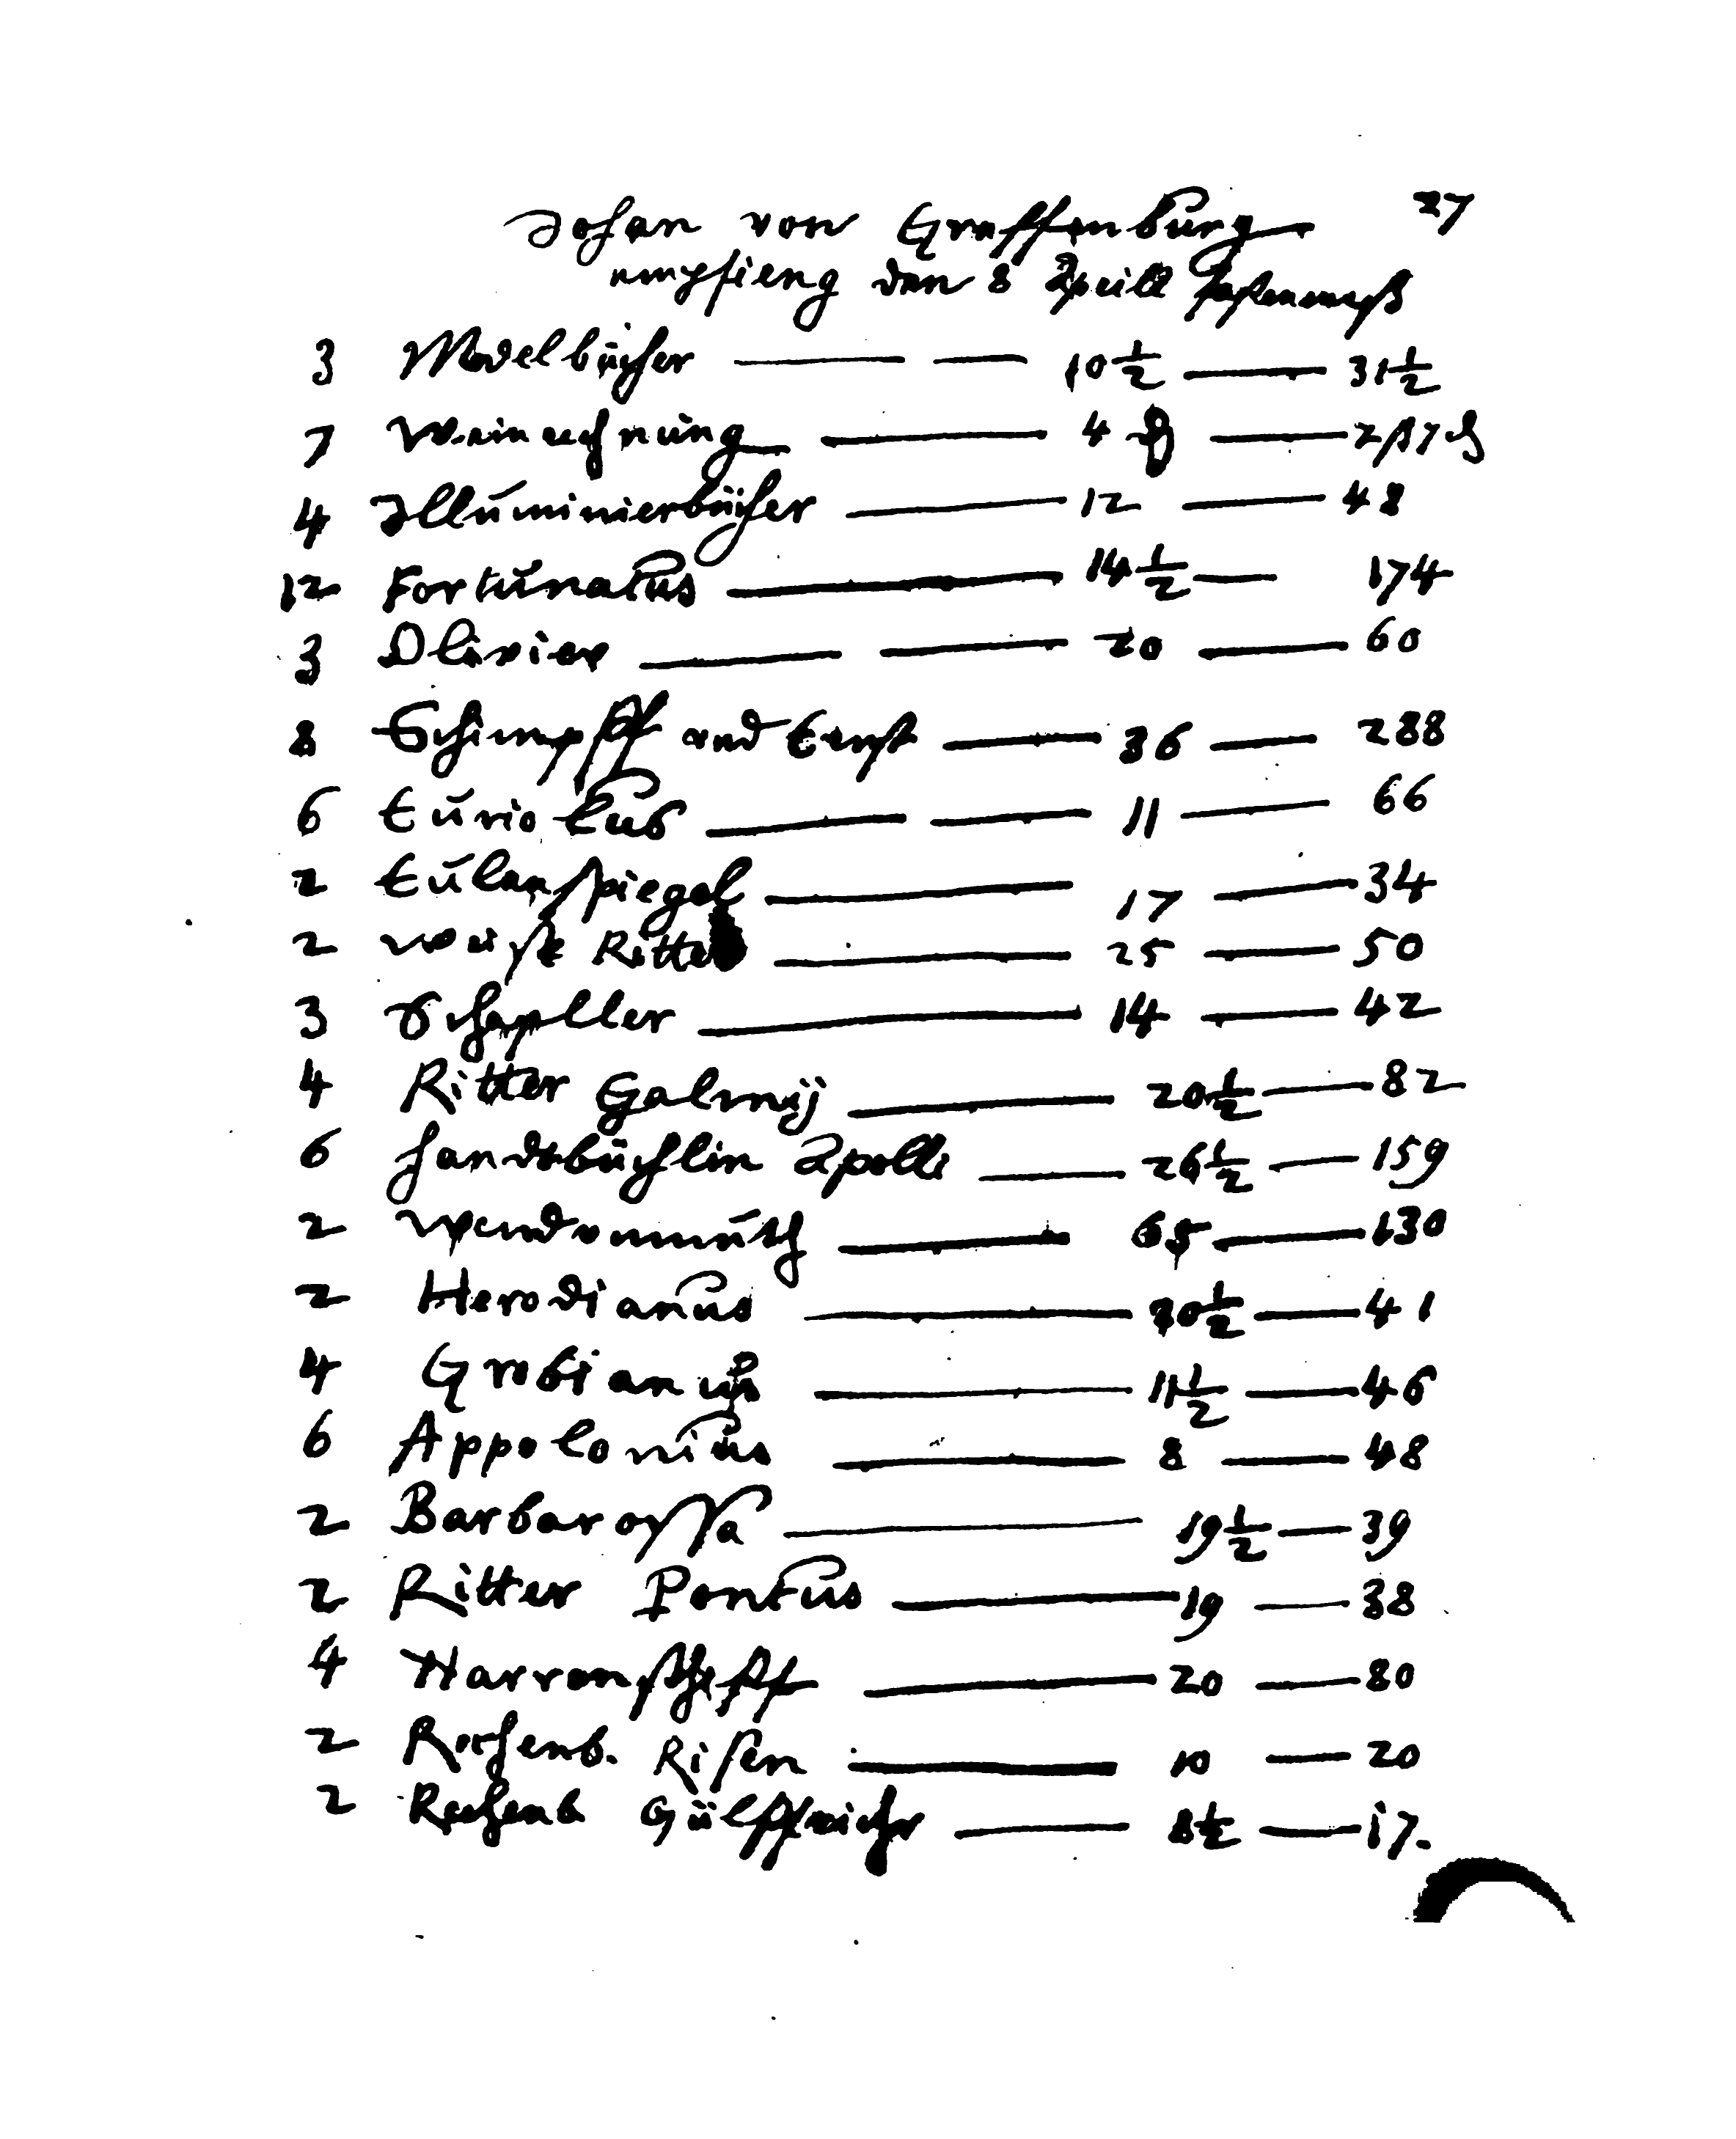 Johan von Graffenburg 27
empfieng den 8 Aprill fastenmeß
3 Modelbücher — — 10 1/2 — 31 1/2
7 Weinrechnung — 4
4 Illuminierbücher — 12 — 48
12 Fortunatus — 14 1/2 — 174
3 Olivier — — 20 — 60
8 Schimpff und Ernst — 36 — 288
6 Euriolus — — 11 — 66
2 Eulenspiegel — 17 — 34
2 weiße Ritter — 25 — 50
3 Schapller — 14 — 42
4 Ritter Galmÿ — 20 1/2 — 82
6 Handtbüchlin Apolli — 26 1/2 — 159
2 Wendunmuth — 65 — 130
2 Herodianus — 20 1/2 — 41
4 Grobianus — 11 1/2 — 46
6 Appolonius — 8 — 48
2 Barbarossa — 19 1/2 — 39
2 Ritter Pontus — 19 — 38
4 Narrenschiff — 20 — 80
2 Rechenb. Risen — 10 — 20
2 Rechenb Gülfferichs — 8 1/2 — 17.